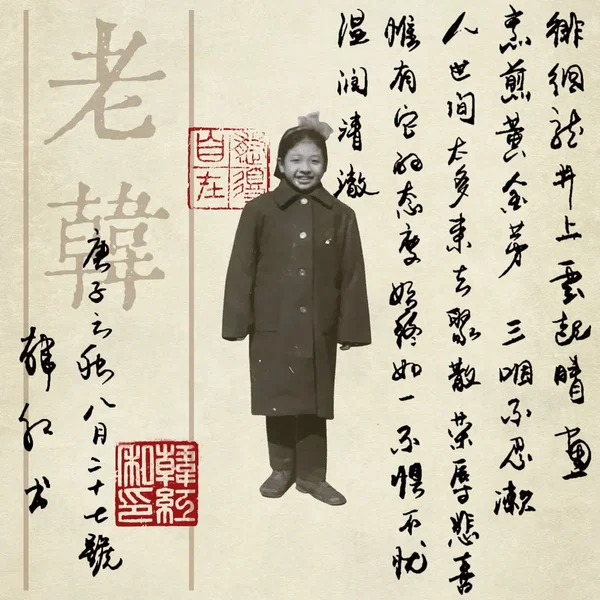 徘徊龙井上雲起晴畫
烹煎黃金芽 三咽不忍漱
人世间太多来去聚散荣辱悲喜
惟有它的态度始终如一不懼不
温润清澈
得自在
老韓
庚子之秋八月二十七號
韓红书
韓紅私印